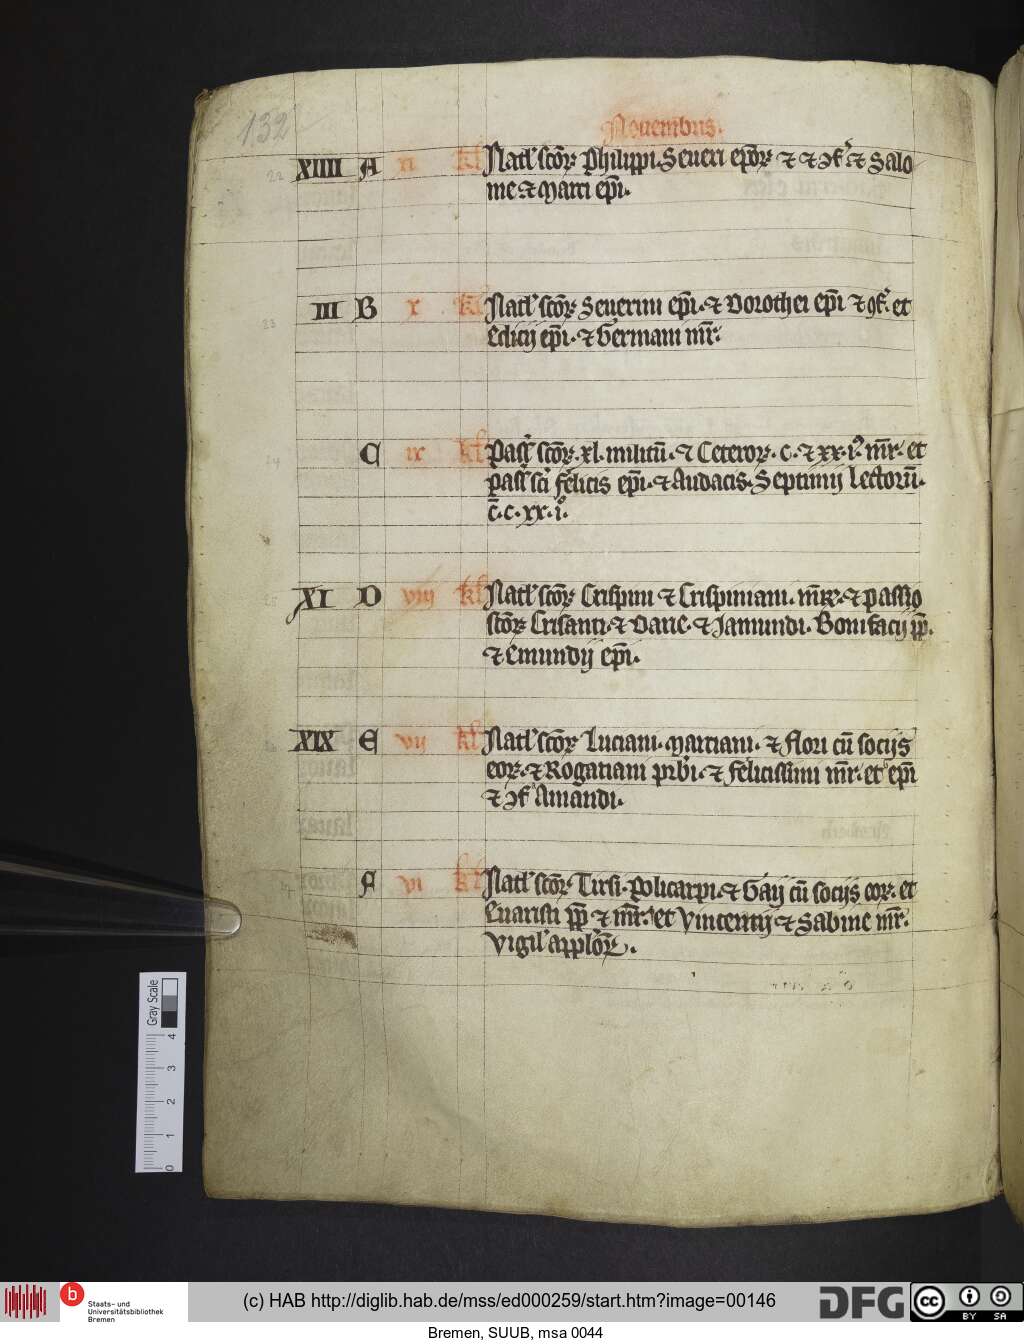 132
Nouembris.
22 XIIII A xi kl Natl' sc̄oꝝ Philippi. Seueri ep̄oꝝ ⁊ ⁊ ↄf' ⁊ Salo
me ⁊ Marci ep̄i.
23 III B x kl Natl' sc̄oꝝ Seuerini ep̄i. ⁊ Dorothei ep̄i ⁊ ↄf'. et
Edicij ep̄i. ⁊ Germani mr̄.
24 C ix kl Pass' sc̄oꝝ. xl. militū. ⁊ Ceteroꝝ. c. ⁊ xx. i°. mr̄. et
pass' sc̄i felicis ep̄i. ⁊ Audacis. Septimij lectorū.
c̄. c. xx. i°.
25 XI D viij kl Natl' sc̄oꝝ Crispini ⁊ Crispiniani. mr̄. ⁊ passio
sc̄oꝝ Crisanti. ⁊ Darie. ⁊ Jamundi. Bonifacij pp̄.
⁊ Emundij ep̄i.
XIX E vij kl Natl' sc̄oꝝ Luciani. Marciani. ⁊ flori cū socijs
eoꝝ. ⁊ Rogatiani prb̄i. ⁊ felicissimi mr̄. et ep̄i
⁊ ↄf' Amandi.
F vi kl Natl' sc̄oꝝ Tirsi. Policarpi. ⁊ Gaij cū socijs eoꝝ. et
Euaristi pp̄ ⁊ mr̄. et Vincentij ⁊ Sabine mr̄.
Vigil' appl'oꝝ.
Gray Scale
4
3
2
1
0
b
Staats- und
Universitätsbibliothek
Bremen
(c) HAB http://diglib.hab.de/mss/ed000259/start.htm?image=00146
DFG
cc
BY SA
Bremen, SUUB, msa 0044